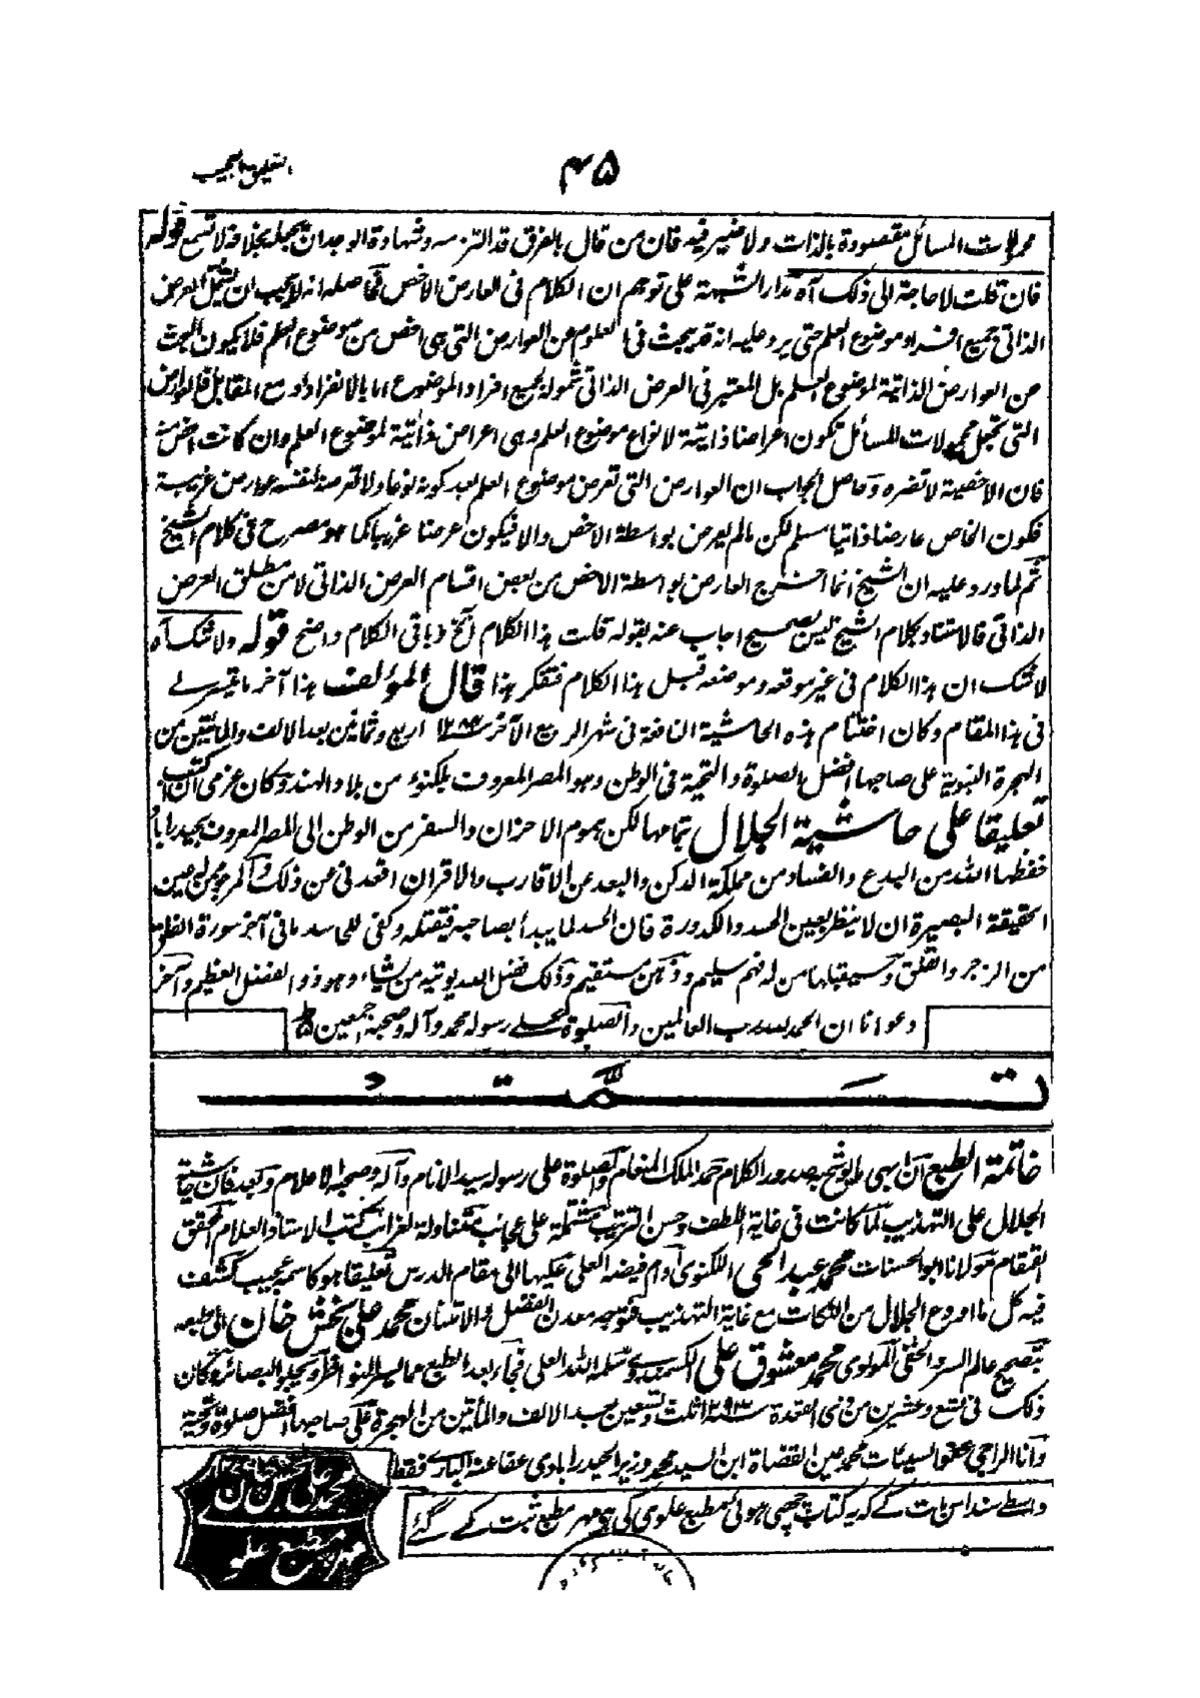 ۴۵
التعليق العجيب
محمولات المسائل مقصودة بالذات ولا ضير فيه فان من قال بالفرق قد التزمه وشهادة الوجدان بخلافه لا تسمع قوله
فان قلت لا حاجة الى ذلك آه مدار الشبهة على توهم ان الكلام فى العارض الاخص فما صله انه لا يجب ان يشمل العرض
الذاتى جميع افراد موضوع العلم حتى يرد عليه انه قد يبحث فى العلوم عن العوارض التى هى اخص من موضوع العلم فلا يكون البحث
عن العوارض الذاتية لموضوع العلم بل المعتبر فى العرض الذاتى شموله لجميع افراد الموضوع اما بالانفراد او مع المقابل فالعوارض
التى تجعل محمولات للمسائل تكون اعراضا ذاتية لانواع موضوع العلم وهى اعراض ذاتية لموضوع العلم وان كانت اخص منه
فان الاخصية لا تضره وحاصل الجواب ان العوارض التى تعرض موضوع العلم بعد كونه نوعا ولا تعرضه لنفسه عوارض غريبة
فكون الخاص عارضا ذاتيا مسلم لكن ما لم يعرض بواسطة الاخص والا فيكون عرضا غريبا كما هو مصرح فى كلام الشيخ
ثم لما ورد عليه ان الشيخ انما اخرج العارض بواسطة الاخص من بعض اقسام العرض الذاتى لا من مطلق العرض
الذاتى فالاستناد بكلام الشيخ ليس بصحيح اجاب عنه بقوله قلت هذا الكلام آلخ وباقى الكلام واضح قوله ولا شك آه
لا شك ان هذا الكلام فى غير موقعه وموضعه قبل هذا الكلام فتفكر هذا قال المؤلف هذا آخر ما تيسر لى
فى هذا المقام وكان اختتام هذه الحاشية النافعة فى شهر الربيع الآخر ۱۲۸۴ اربع وثمانين بعد الالف والمأتين من
الهجرة النبوية على صاحبها افضل الصلوة والتحية فى الوطن وهو المصر المعروف بلكنوء من بلاد الهند وكان عزمى ان اكتب
تعليقا على حاشية الجلال بتمامها لكن هموم الاحزان والسفر من الوطن الى المصر المعروف بحيدراباد
حفظها الله من البدع والفساد من مملكة الدكن والبعد عن الاقارب والاقران اقعدنى عن ذلك والمرجو ممن له عين
الحقيقة البصيرة ان لا ينظر بعين الحسد والكدورة فان الحسد لما يبدأ بصاحبه فيقتله وكفى للحاسد ما فى آخر سورة الفلق
من الزجر والقلق وسيقبلها من له فهم سليم وذهن مستقيم وذلك فضل الله يوتيه من يشاء وهو ذو الفضل العظيم وآخر
دعوانا ان الحمد لله رب العالمين والصلوة على رسوله محمد وآله وصحبه اجمعين
تمت
خاتمة الطبع ان ابهى ما يوشح به صدور الكلام حمد الملك المنعام والصلوة على رسوله سيد الانام وآله وصحبه الاعلام وبعد فان حاشية
الجلال على التهذيب لما كانت فى غاية اللطف وحسن الترتيب مشتملة على عجائب متناولة لغرائب كتب الاستاذ العلام المحقق
القمقام مولانا ابو الحسنات محمد عبد الحى اللكنوى ادام فيضه العلى عليها الى مقام الدرس تعليقا هو كاسمه عجيب كشف
فيه كل ما اودع الجلال من النكات مع غاية التهذيب فتوجه معدن الفضل والامتنان محمد على بخش خان الى طبعه
بتصحيح عالم السر والخفى المولوى محمد معشوق على سلمه الله العلى فجاء بعد الطبع مما يسر النواظر ويجلو البصائر وكان
ذلك فى تسع وعشرين من ذى القعدة سنة ۱۲۹۳ ثلث وتسعين بعد الالف والمأتين من الهجرة على صاحبها افضل صلوة وتحية
وانا الراجى عفو السيئات محمد معين القضاة ابن السيد محمد وزير الحيدرابادى عفا عنه البارى فقط
واسطے سند اس بات کے کہ یہ کتاب چھپی ہوئی مطبع علوی کی ہے مہر مطبع ثبت کی گئی
محمد علی بخش خان
مهر مطبع علوی